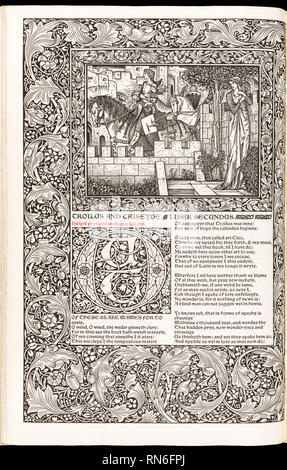 TROILUS AND CRISEYDE LIBER SECUNDUS
OF THESE BLAKE WAWES FOR TO
saile,
O wind, O wind, the weder ginneth clere;
For in this see the boot hath swich travayle,
Of my conning that unnethe I it stere:
This see clepe I the tempestous matere
Of desespeyr that Troilus was inne:
But now of hope the calendes biginne.
O lady myn, that called art Cleo,
Thou be my speed fro this forth, & my muse,
To ryme wel this book, til I have do;
Me nedeth here noon other art to use.
Forwhy to every lovere I me excuse,
That of no sentement I this endyte,
But out of Latin in my tonge it wryte.
Wherfore I nil have neither thank ne blame
Of al this work, but prey yow mekely,
Disblameth me, if any word be lame,
For as myn auctor seyde, so seye I.
Eek though I speke of love unfelingly,
No wonder is, for it nothing of newe is;
A blind man can nat juggen wel in hewis.
Ye knowe eek, that in forme of speche is
chaunge
Withinne a thousand yeer, and wordes tho
That hadden prys, now wonder nyce and
straunge
Us thinketh hem; and yet they spake hem so,
And spedde as wel in love as men now do;
RN6FPJ